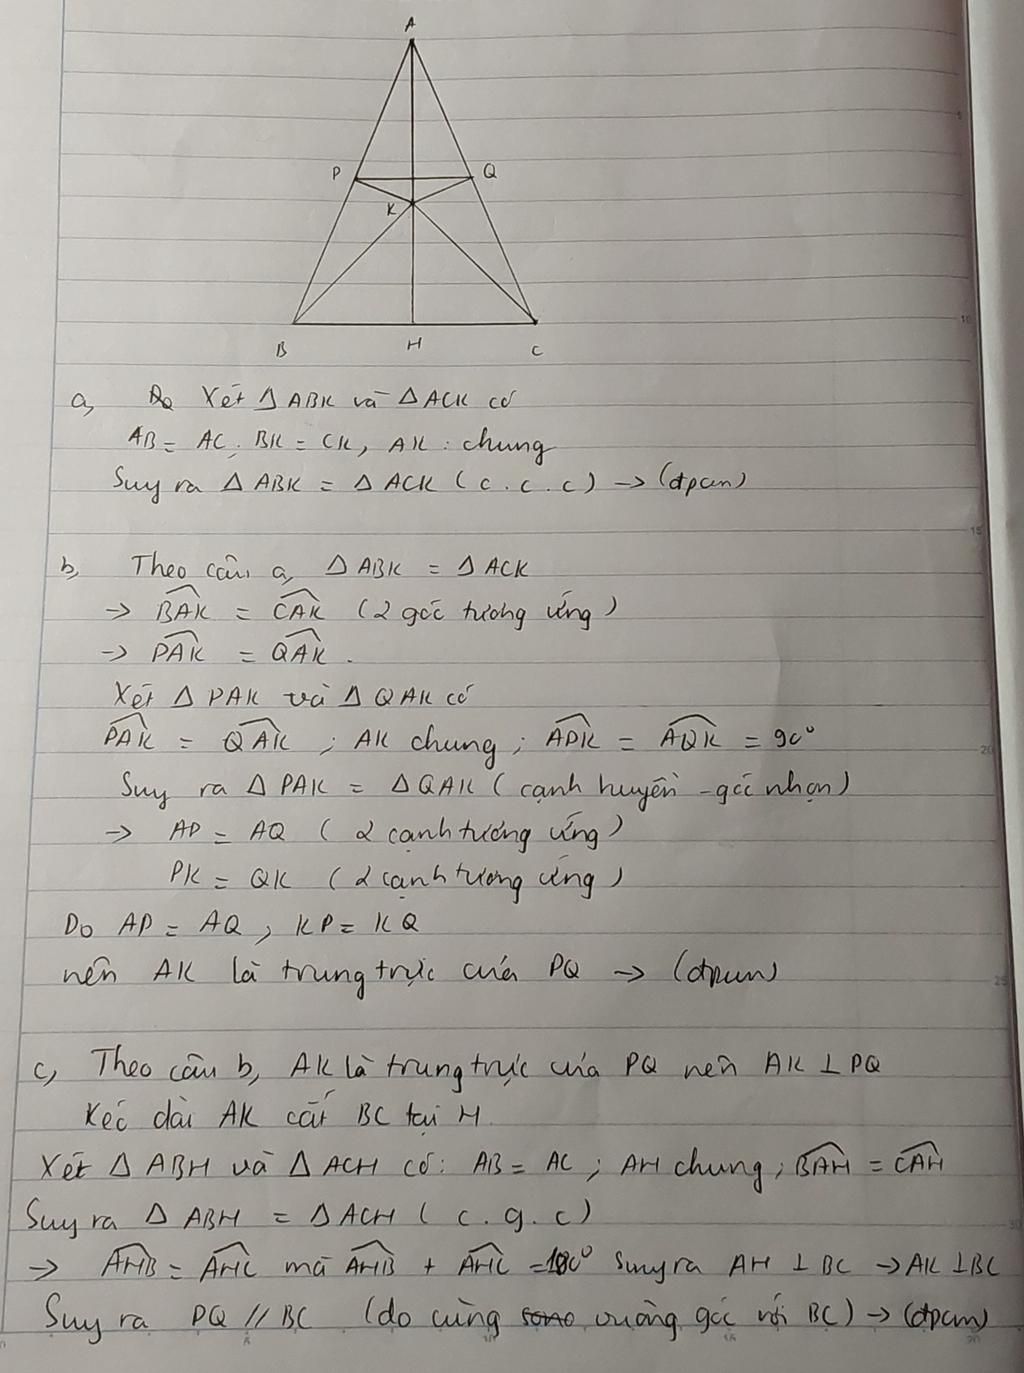 A
P
Q
K
B
H
C
a, Xét Δ ABK và Δ ACK có
AB = AC, BK = CK, AK : chung
Suy ra Δ ABK = Δ ACK ( c . c . c ) → (đpcm)
b, Theo câu a, Δ ABK = Δ ACK
→ \widehat{BAK} = \widehat{CAK} ( 2 góc tương ứng )
→ \widehat{PAK} = \widehat{QAK} .
Xét Δ PAK và Δ QAK có
\widehat{PAK} = \widehat{QAK} ; AK chung ; \widehat{APK} = \widehat{AQK} = 90°
Suy ra Δ PAK = Δ QAK ( cạnh huyền - góc nhọn )
→ AP = AQ ( 2 cạnh tương ứng )
PK = QK ( 2 cạnh tương ứng )
Do AP = AQ , KP = KQ
nên AK là trung trực của PQ → (đpcm)
c, Theo câu b, AK là trung trực của PQ nên AK ⊥ PQ
Kéo dài AK cắt BC tại H.
Xét Δ ABH và Δ ACH có: AB = AC ; AH chung ; \widehat{BAH} = \widehat{CAH}
Suy ra Δ ABH = Δ ACH ( c . g . c )
→ \widehat{AHB} = \widehat{AHC} mà \widehat{AHB} + \widehat{AHC} = 180° Suy ra AH ⊥ BC → AK ⊥ BC
Suy ra PQ // BC (do cùng vuông góc với BC) → (đpcm)